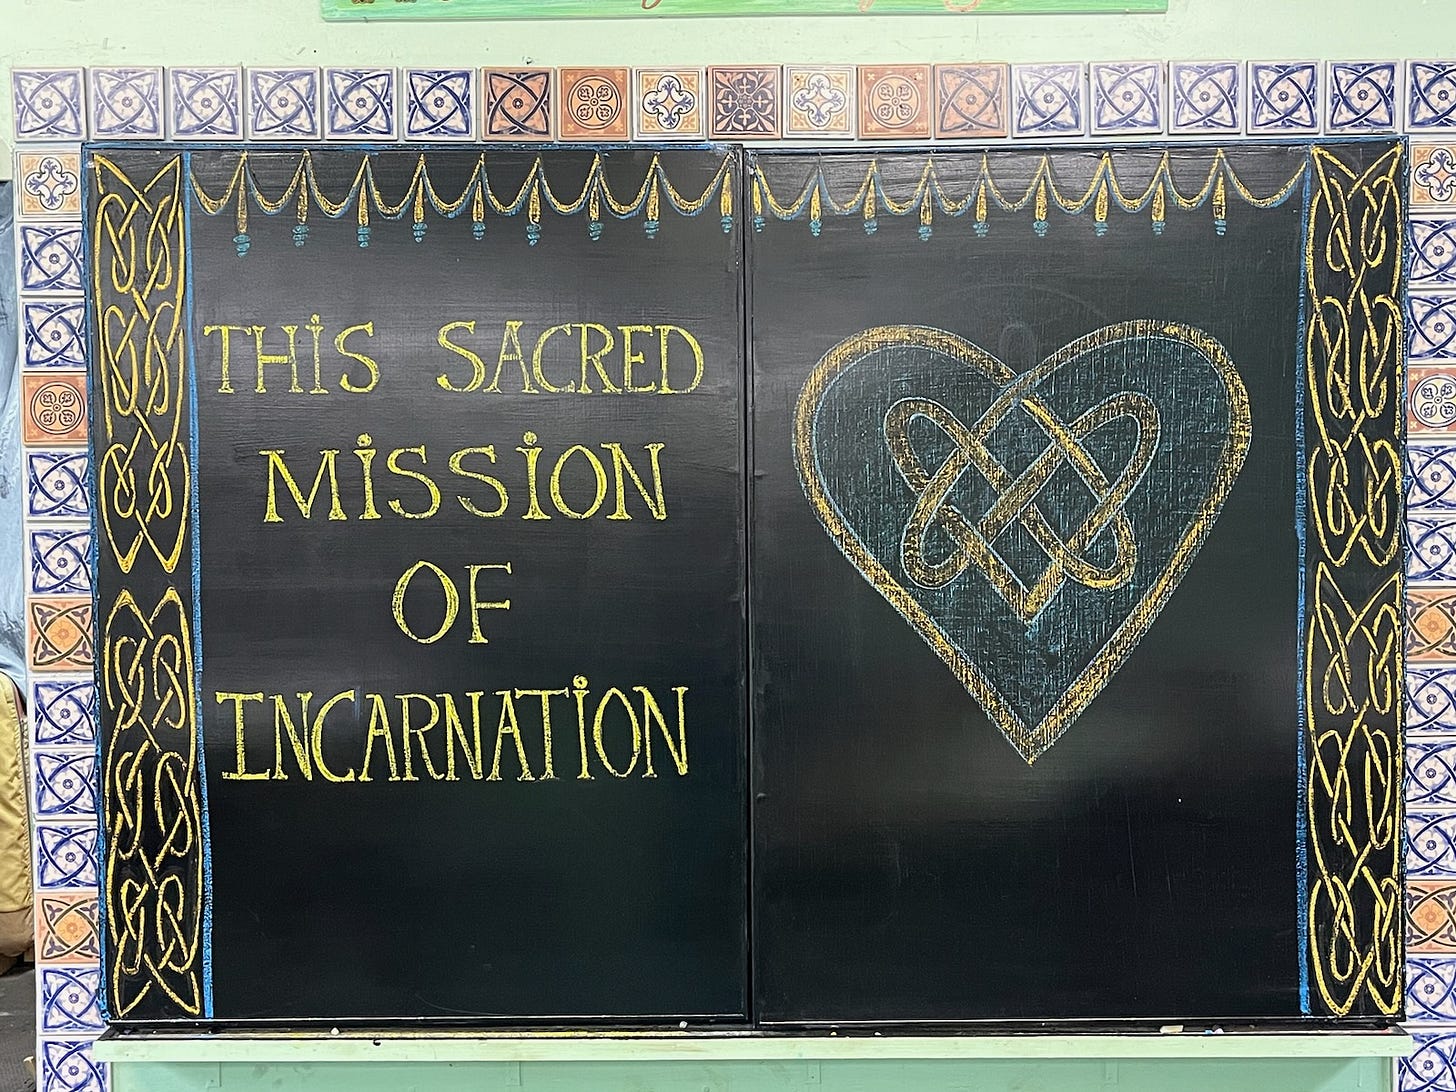 THIS SACRED
MISSION
OF
INCARNATION